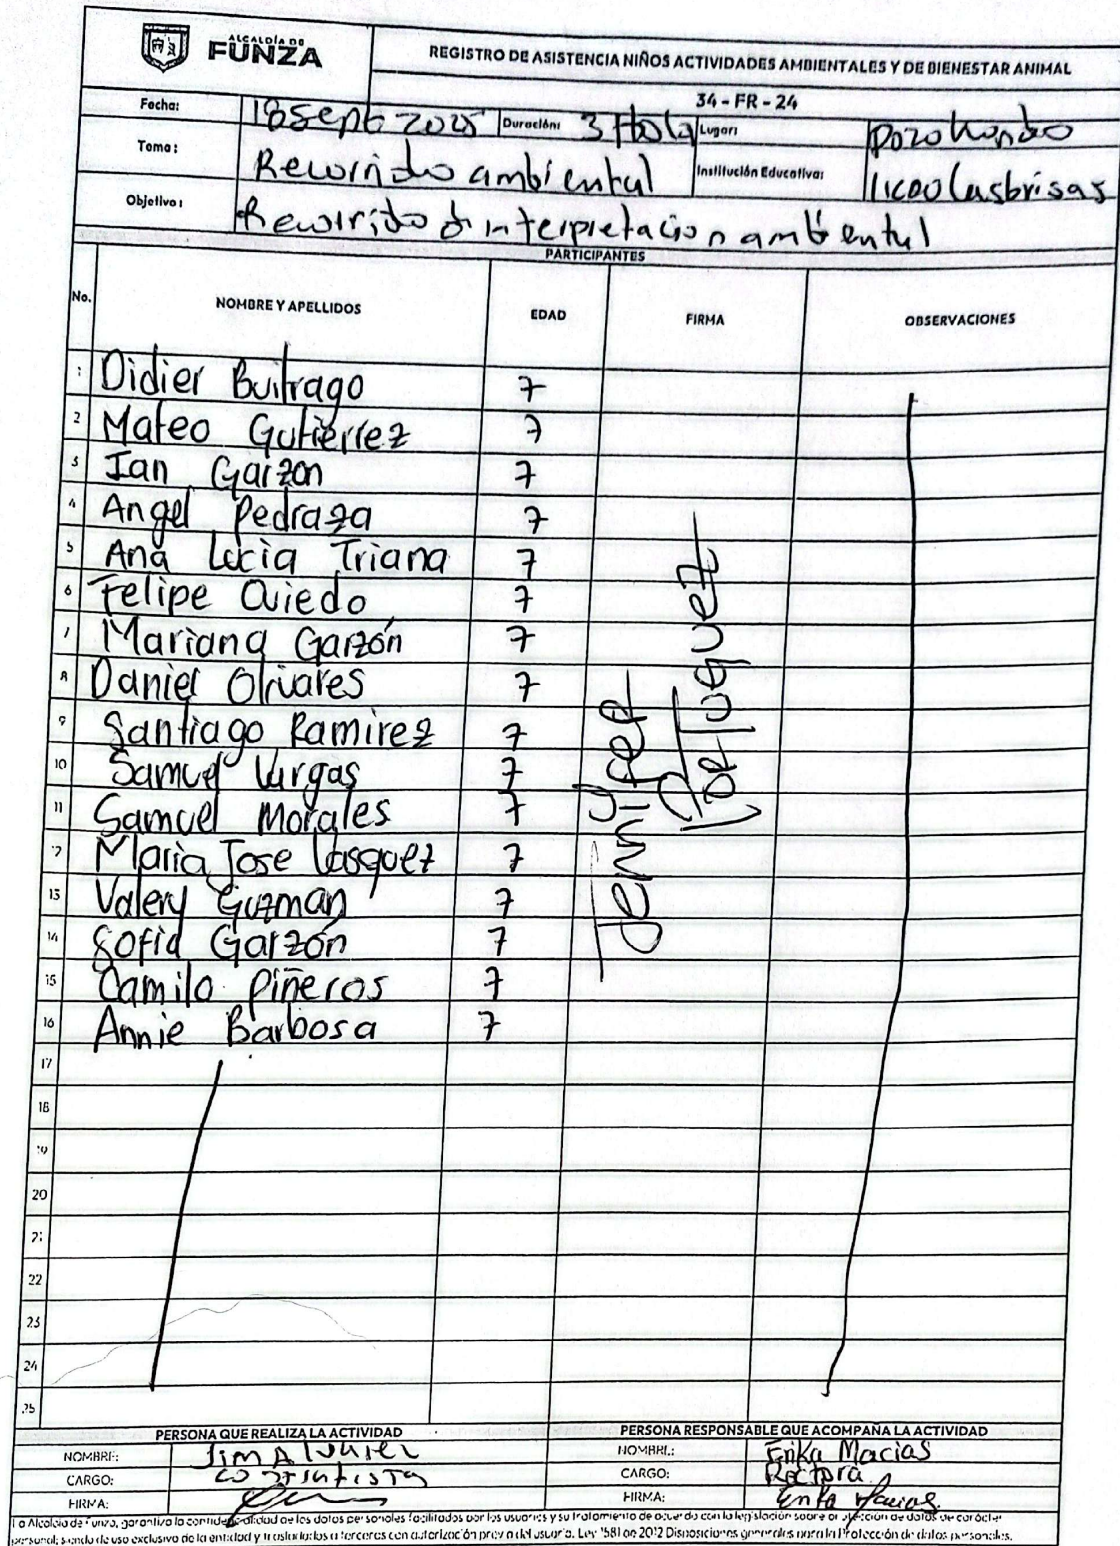 ALCALDÍA DE
FUNZA
REGISTRO DE ASISTENCIA NIÑOS ACTIVIDADES AMBIENTALES Y DE BIENESTAR ANIMAL
34 - FR - 24
Fecha: 18 Sept 2025 Duración: 3 Hola Lugar: Pozo Hondo
Tema: Recorrido ambiental Institución Educativa: liceo las brisas
Objetivo: Recorrido d interpretación ambiental
PARTICIPANTES
No. NOMBRE Y APELLIDOS EDAD FIRMA OBSERVACIONES
1 Didier Buitrago 7
2 Mateo Gutiérrez 7
3 Ian Garzon 7
4 Angel Pedraza 7
5 Ana Lucia Triana 7
6 Felipe Oviedo 7
7 Mariana Garzón 7
8 Daniel Olivares 7
9 Santiago Ramirez 7
10 Samuel Vargas 7
11 Samuel Morales 7
12 Maria Jose Vasquez 7
13 Valery Guzman 7
14 Sofia Garzón 7
15 Camilo Piñeros 7
16 Annie Barbosa 7
17
18
19
20
21
22
23
24
25
Jennifer
PERSONA QUE REALIZA LA ACTIVIDAD PERSONA RESPONSABLE QUE ACOMPAÑA LA ACTIVIDAD
NOMBRE: Jim Alvarez NOMBRE: Erika Macias
CARGO: contratista CARGO: Rectora
FIRMA: FIRMA: Erika Macias
La Alcaldía de Funza, garantiza la confidencialidad de los datos personales facilitados por los usuarios y su tratamiento de acuerdo con la legislación sobre protección de datos de carácter
personal; siendo de uso exclusivo de la entidad y trasladados a terceros con autorización previa del usuario. Ley 1581 de 2012 Disposiciones generales para la Protección de datos personales.